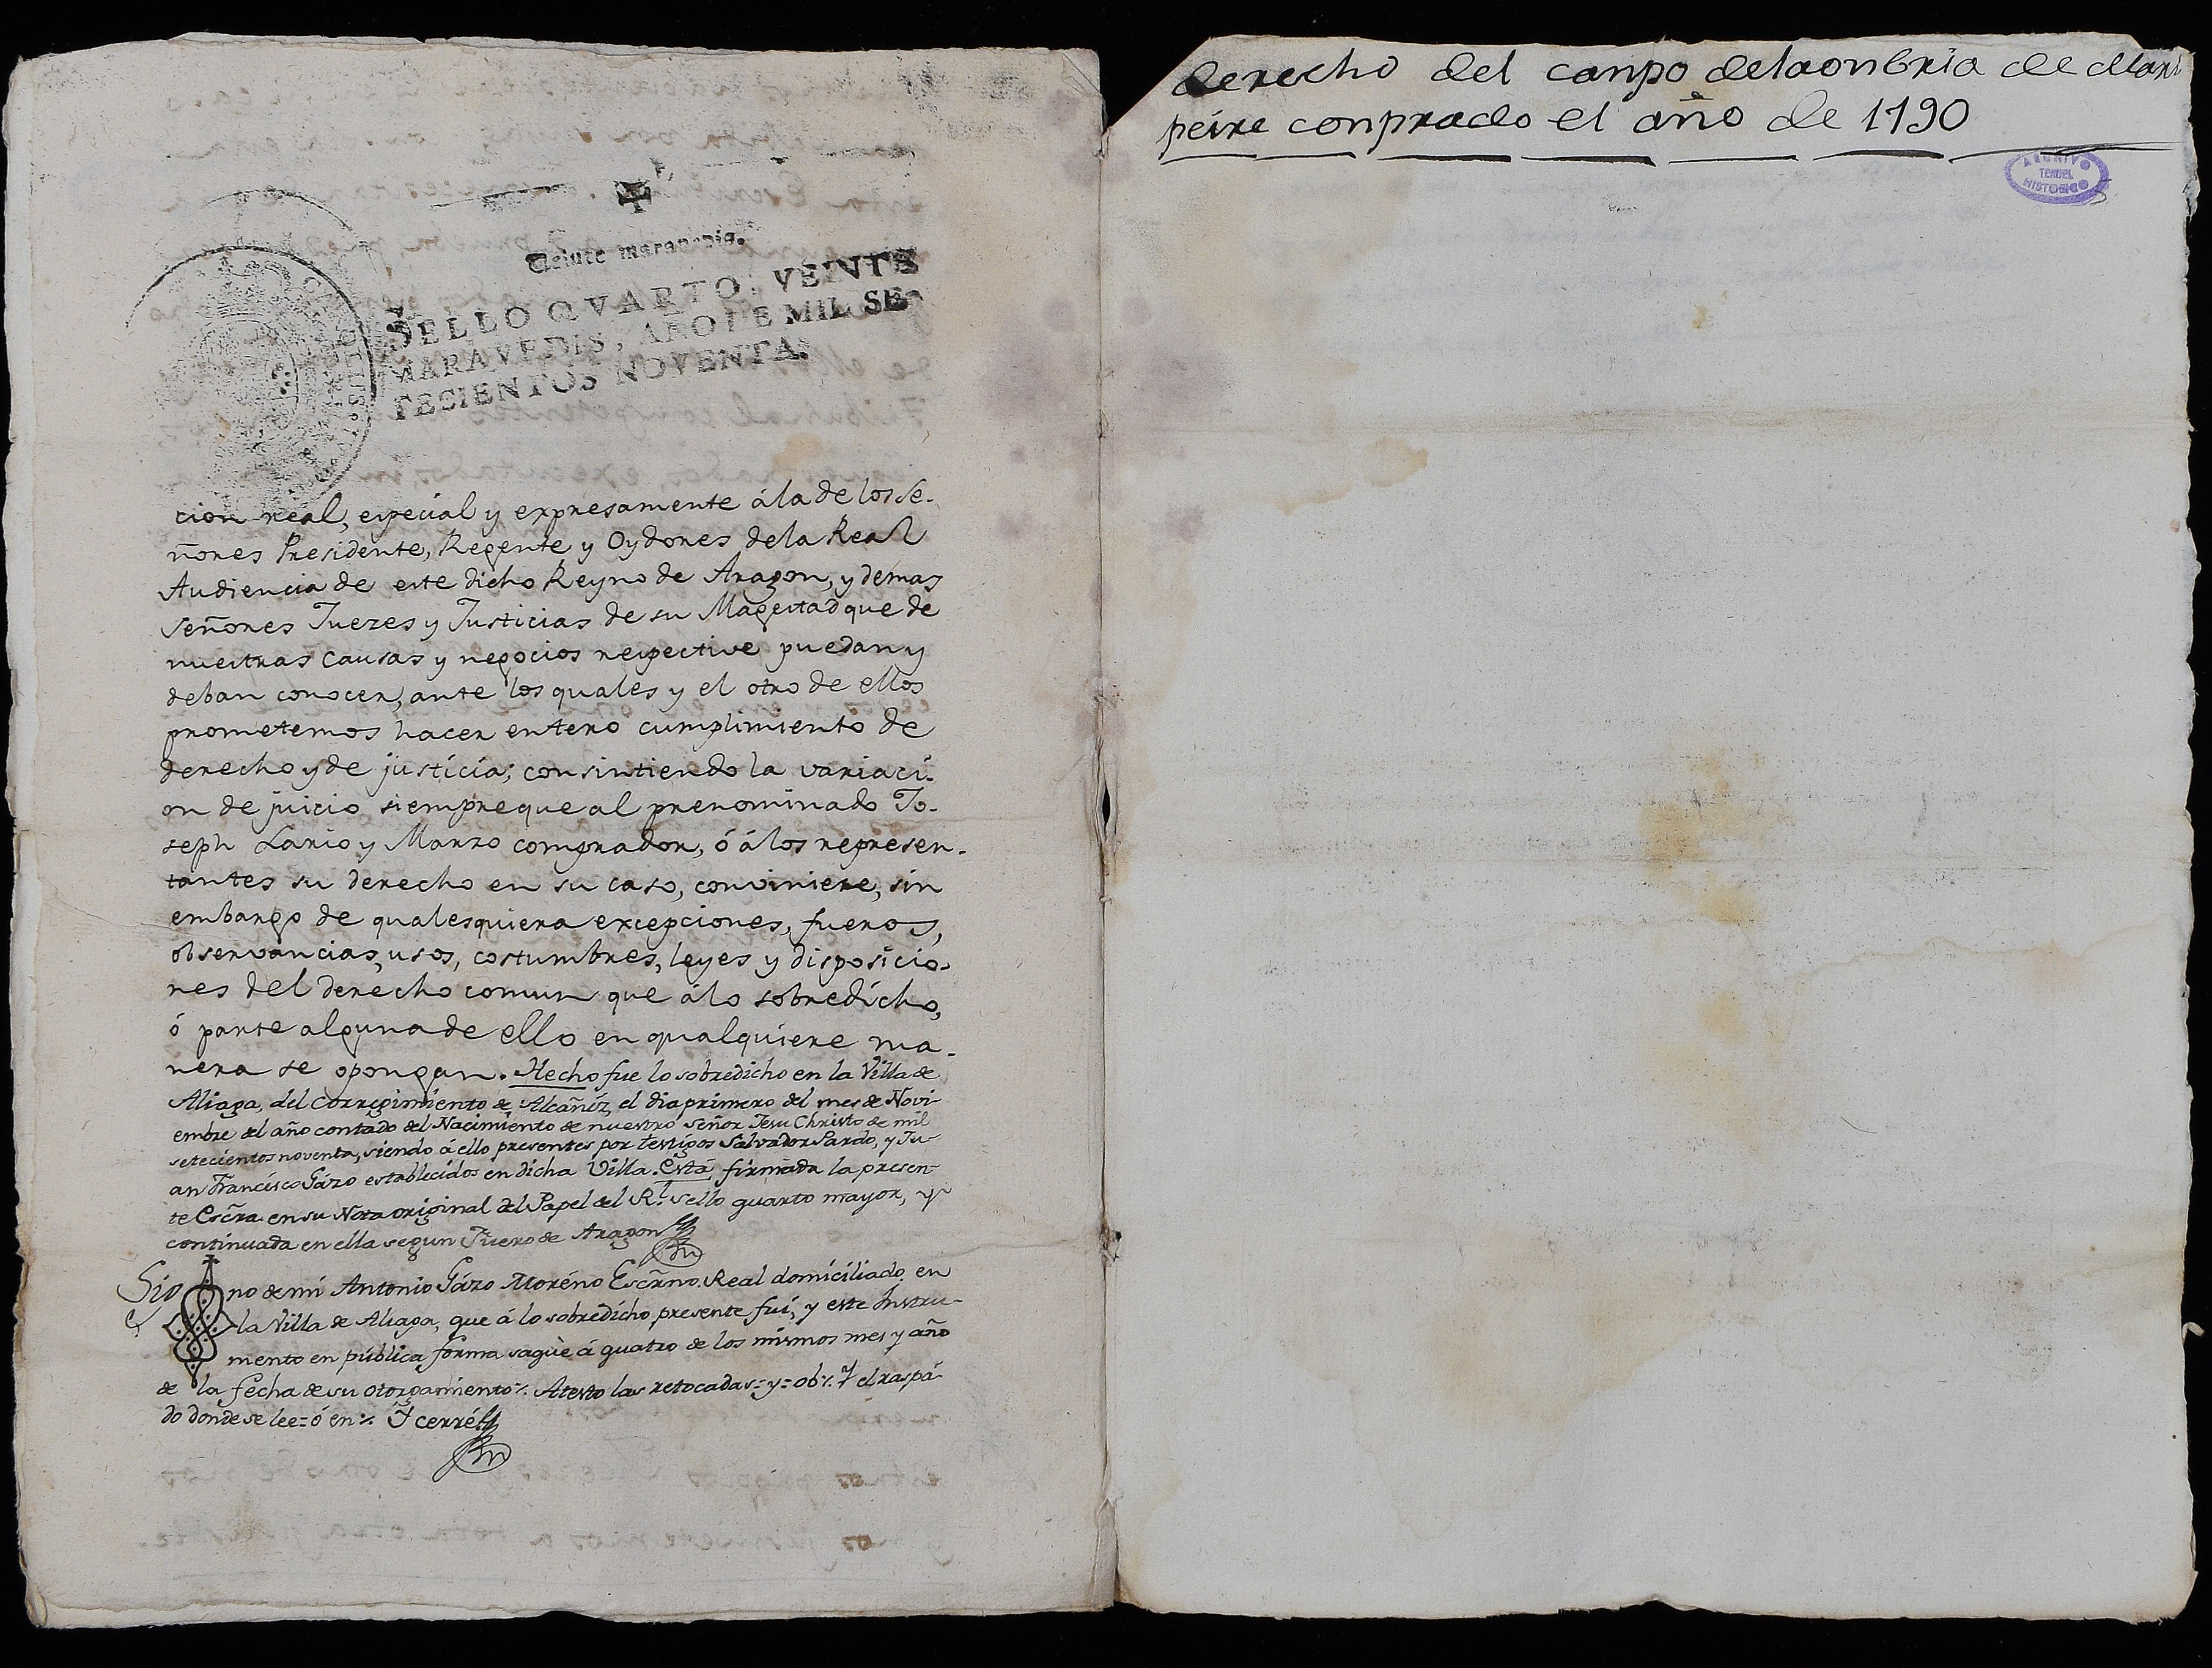 Veinte maravedis.
SELLO QVARTO, VEINTE
MARAVEDIS, AÑO DE MIL SE-
TECIENTOS NOVENTA.
cion real, especial y expresamente á la de los Se-
ñores Presidente, Regente y Oydores de la Real
Audiencia de este dicho Reyno de Aragon, y demas
Señores Juezes y Justicias de su Magestad que de
nuestras causas y negocios respective puedan y
deban conocer, ante los quales y el otro de ellos
prometemos hacer entero cumplimiento de
derecho y de justicia; consintiendo la variaci-
on de juicio siempre que al prenominado Jo-
seph Lario y Marzo comprador, ó á los represen-
tantes su derecho en su caso, conviniere, sin
embargo de qualesquiera excepciones, fueros,
observancias, usos, costumbres, leyes y disposicio-
nes del derecho comun que á lo sobredicho,
ó parte alguna de ello en qualquiere ma-
nera se opongan. Hecho fue lo sobredicho en la Villa de
Aliaga, del Corregimiento de Alcañiz, el dia primero del mes de Novi-
embre del año contado del Nacimiento de nuestro Señor Jesu Christo de mil
setecientos noventa, siendo á ello presentes por testigos Salvador Pardo, y Ju-
an Francisco Gázo establecidos en dicha Villa. Está firmada la presen-
te Escra. en su Nota original del Papel del Rl. sello quarto mayor, y
continuada en ella segun Fuero de Aragon
Sig no de mí Antonio Gázo Moréno Escrno. Real domiciliado en
la Villa de Aliaga, que á lo sobredicho presente fuí, y este Instru-
mento en pública forma saquè á quatro de los mismos mes y año
de la fecha de su otorgamiento%. Atesto las retocadas=y=ob%. Y el raspá-
do donde se lee=ó en%. Y cerré
derecho del canpo delaonbria de Mari
peire conprado el año de 1790
ARCHIVO
TERUEL
HISTORICO